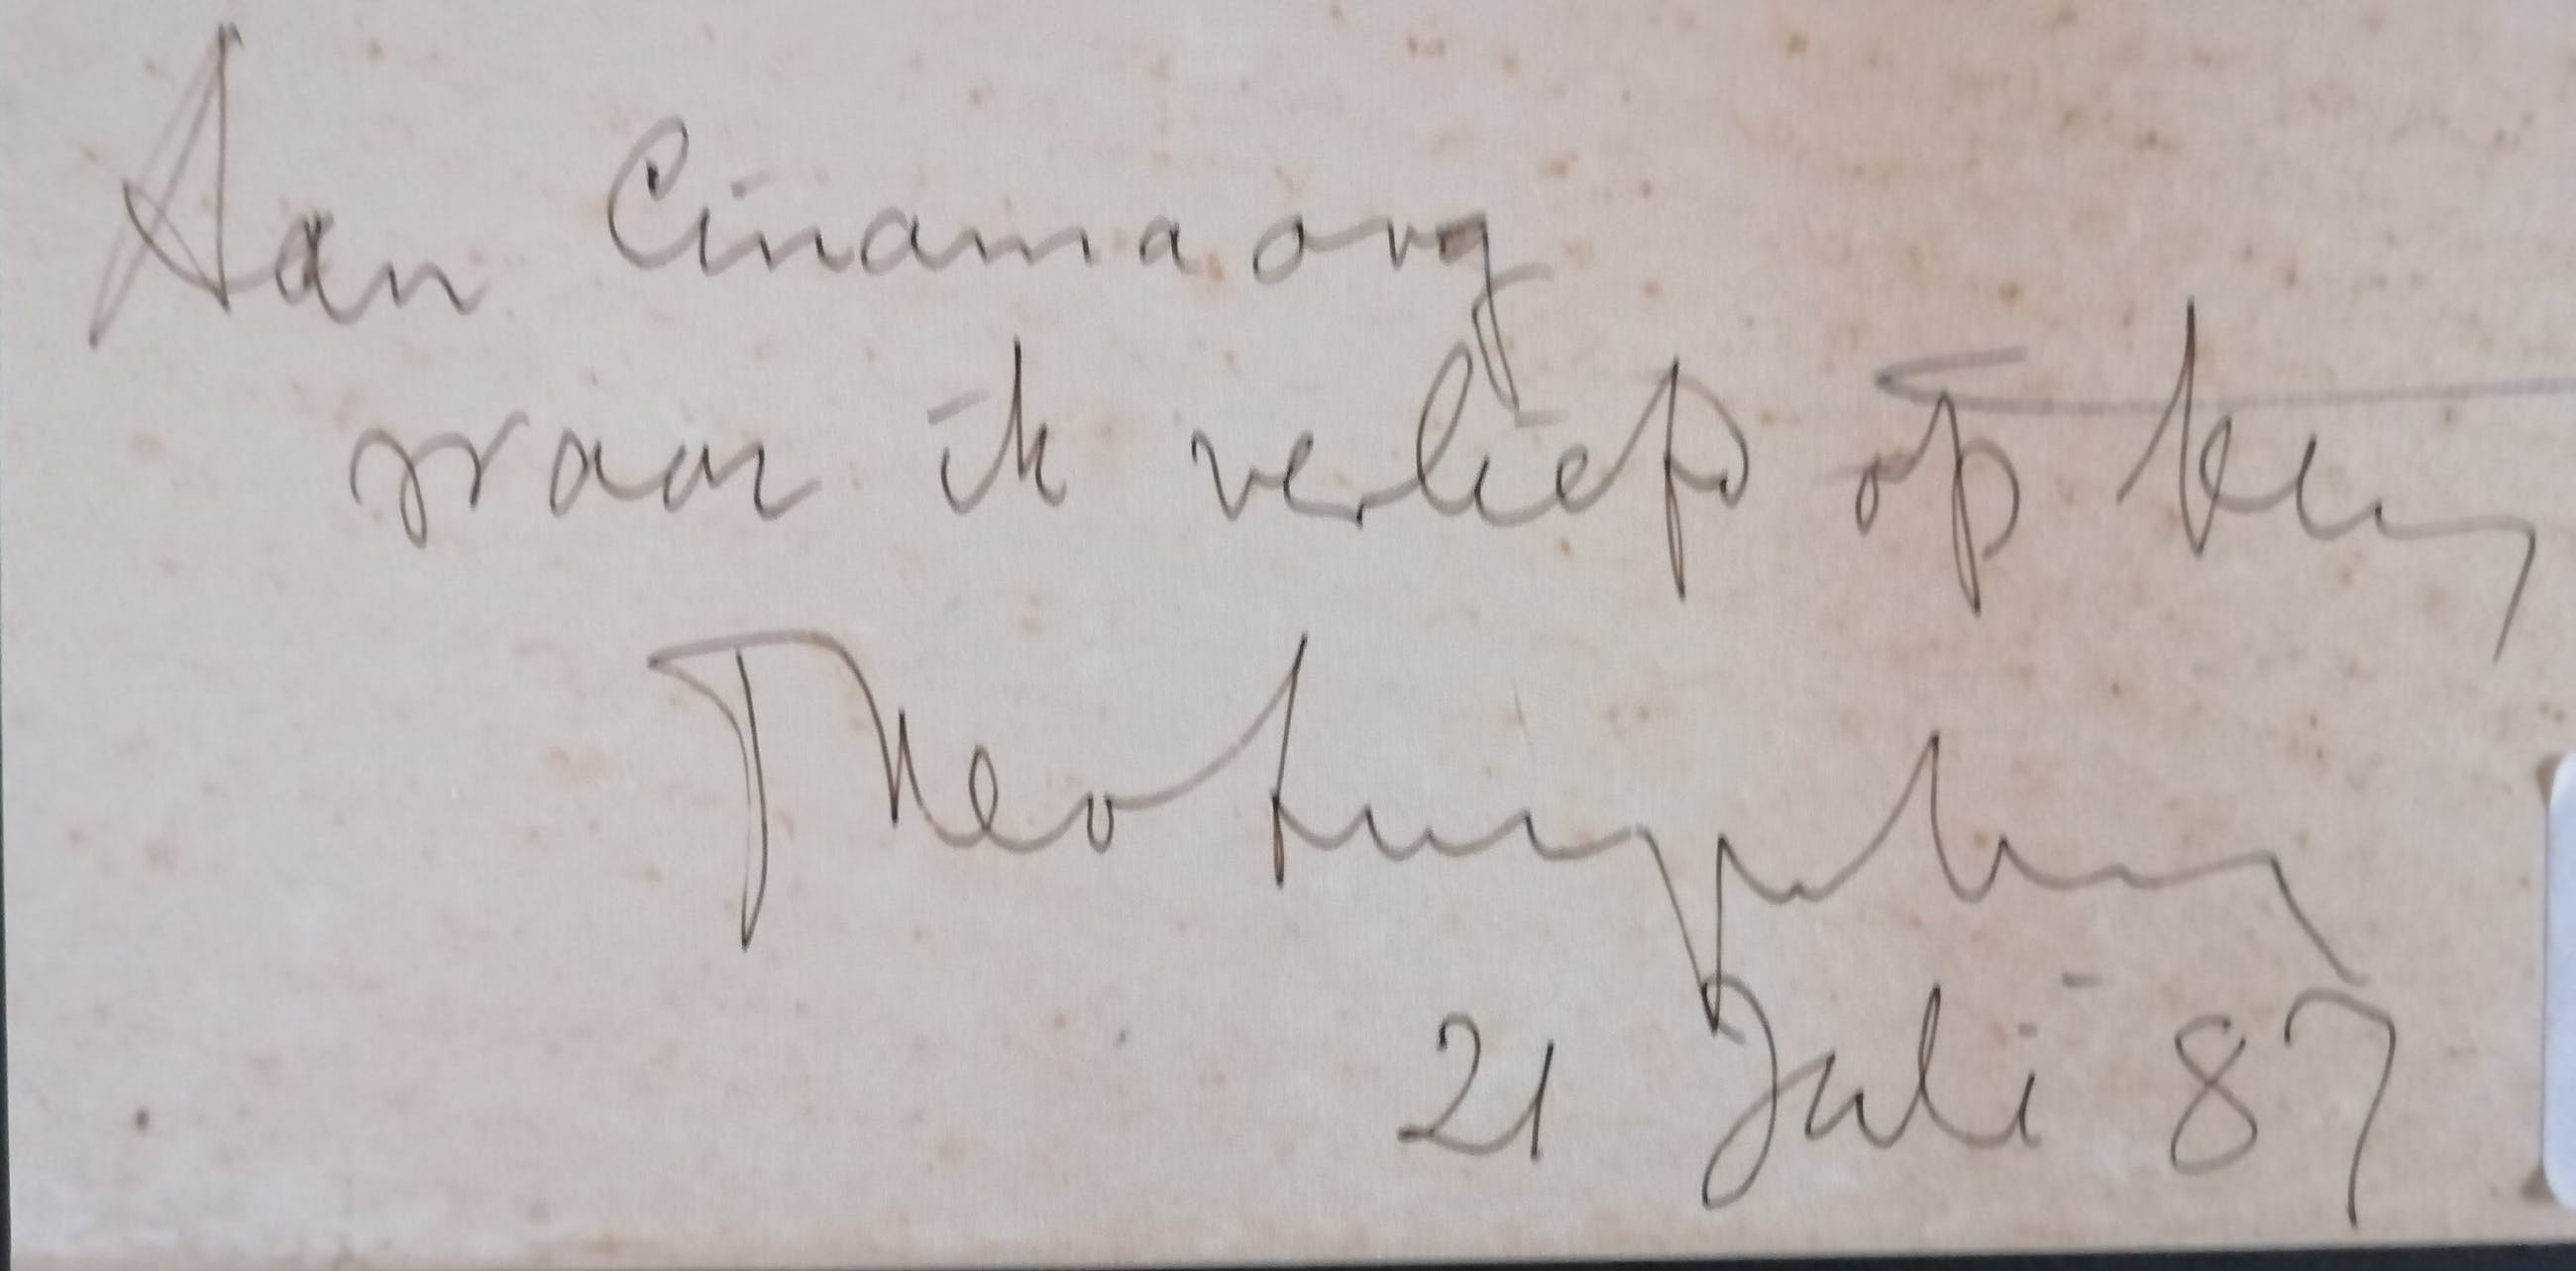 Aan Cinamaorg
waar ik verliefd op ben
Theo
21 Juli 87